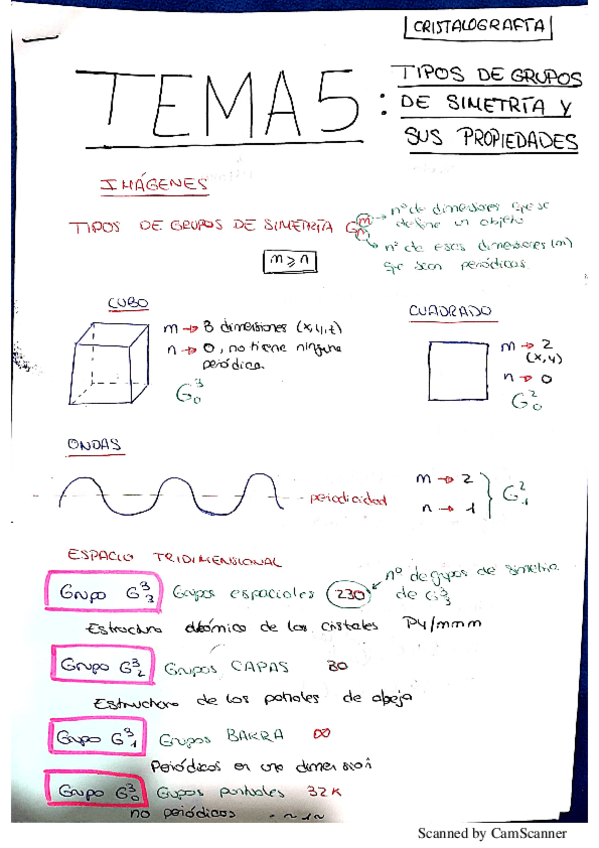 CRISTALOGRAFIA
TEMA 5: TIPOS DE GRUPOS
DE SIMETRÍA Y
SUS PROPIEDADES
IMÁGENES
TIPOS DE GRUPOS DE SIMETRÍA G m n
nº de dimensiones que se
define un objeto
nº de esas dimensiones (m)
que son periódicos
m ≥ n
CUBO
m → 3 dimensiones (x, y, z)
n → 0, no tiene ninguna
periódica.
G³₀
CUADRADO
m → 2
(x, y)
n → 0
G²₀
ONDAS
periodicidad
m → 2
n → 1
G²₁
ESPACIO TRIDIMENSIONAL
Grupo G³₃ Grupos espaciales 230
nº de grupos de simetría
de G³₃
Estructura atómica de los cristales P4/mmm
Grupo G³₂ Grupos CAPAS 80
Estructura de los panales de abeja
Grupo G³₁ Grupos BARRA ∞
Periódicos en una dimensión
Grupo G³₀ Grupos puntuales 32K
no periódicos
Scanned by CamScanner